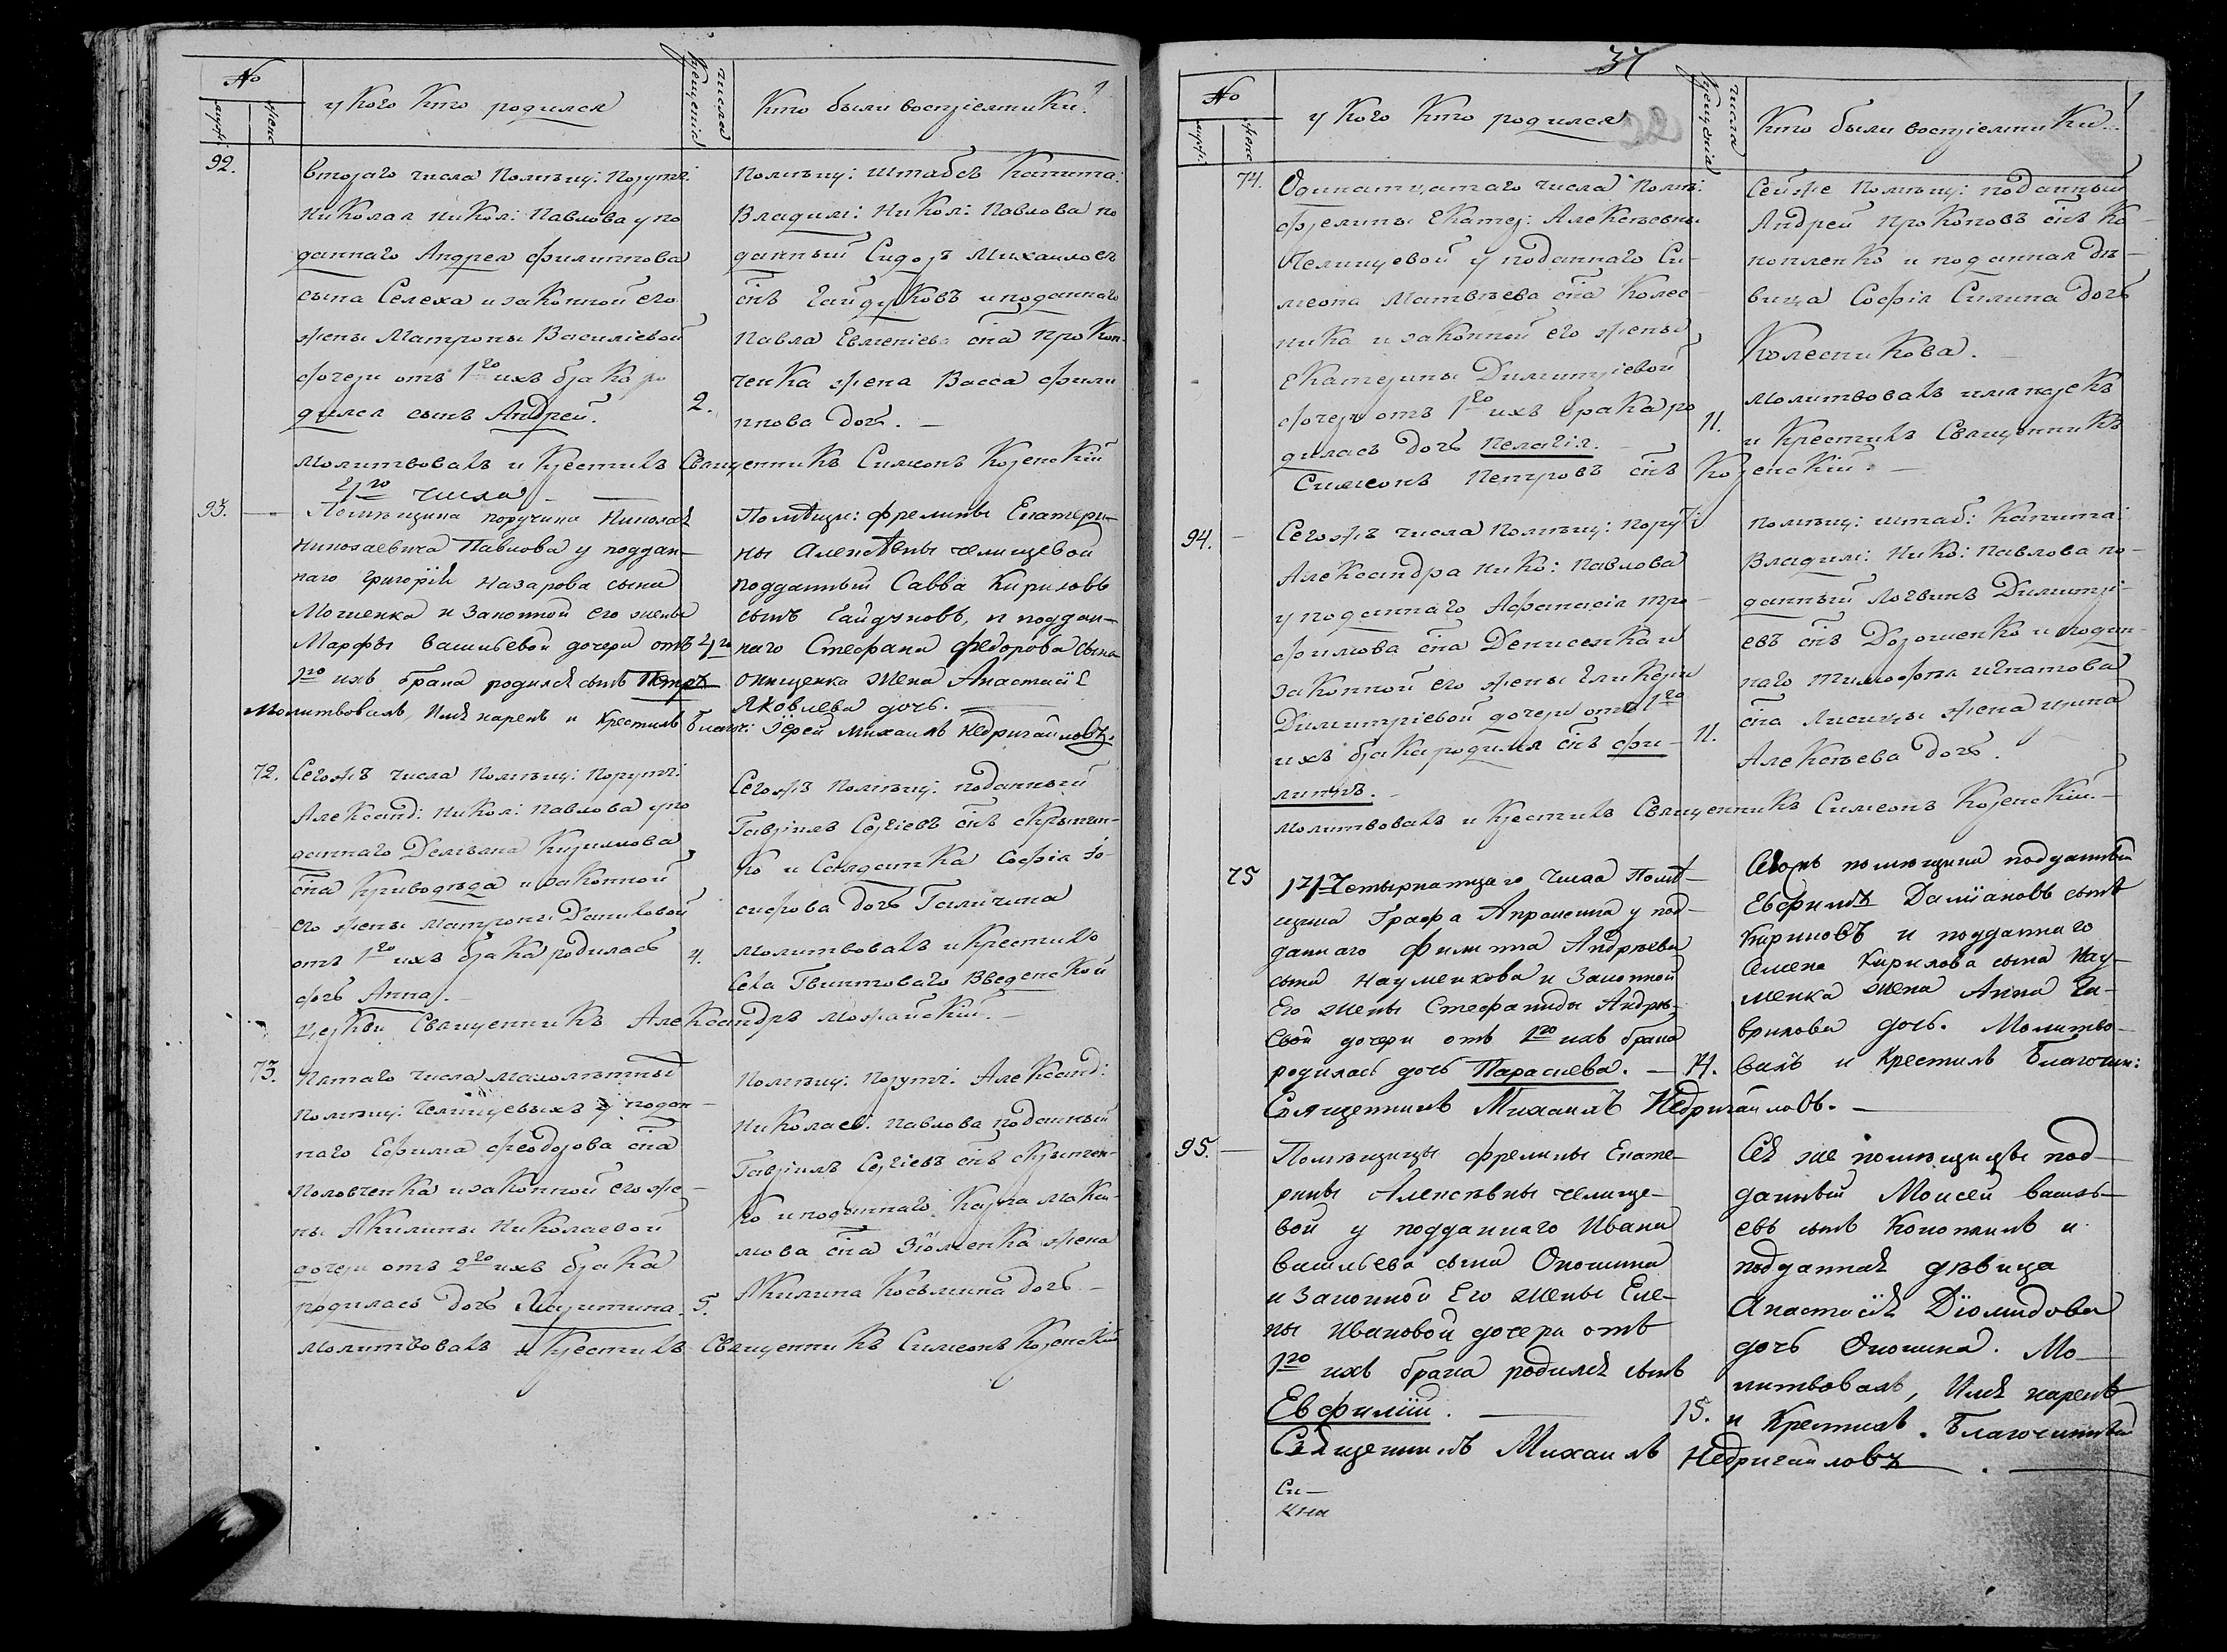 №
у Кого Кто родился
числа Крещенія
Кто были воспріемники.
мужс:
женс
92.
втораго числа Помѣщ: Поруч:
Николая Никол: Павлова у по
даннаго Андрея Филиппова
сына Селеха и законной его
жены Матроны Василіевой
дочери отъ 1го ихъ брака ро
дился сынъ Андрей.
2.
Помѣщ: штабсъ Капита:
Владим: Никол: Павлова по
данный Сидоръ Михаиловъ
снъ Гайдуковъ и поданнаго
Павла Евменіева сна Прокоп
ченка жена Васса Фили
ппова дочь. —
молитвовалъ и Крестилъ Священникъ Симеонъ Козенскій
4го числа —
93. —
Помѣщика поручика Николая
Николаевича Павлова у поддан—
наго Григорія Назарова сына
Мошенка и Законной его жены
Марфы Васильевой дочери отъ
1го ихъ брака родился сынъ Петръ
4го
Помѣщи: фрелины Екатери—
ны Алексѣевны Челищевой
подданный Савва Кириловъ
сынъ Гайдуковъ, и поддан—
наго Стефана Федорова сына
Онищенка жена Анастасія
Яковлева дочь. —
Молитвовалъ, Имя нарекъ и Крестилъ Благоч: Іерей Михаилъ Недригайловъ.
72.
Сегожъ числа Помѣщ: Поруч:
Александ: Никол: Павлова у по
даннаго Демьяна Кириллова
сна Криводѣда и законной
его жены Матроны Даниловой
отъ 1го ихъ брака родилась
дочь Анна. —
4.
Сегожъ Помѣщ: поданный
Гавріилъ Сергіевъ снъ Скрыпчен-
ко и Солдатка Софія Іо-
сифова дочь Галичина
молитвовалъ и Крестилъ
Села Гвинтоваго Введенской
Церкви Священникъ Александръ Можайскій. —
73.
Пятаго числа малолѣтныхъ
Помѣщ: Челищевыхъ у подан—
наго Ефима Феодорова сна
Половченка и законной его же—
ны Акилины Николаевой
дочери отъ 2го ихъ брака
родилась дочь Іустина.
5.
Помѣщ: Поруч: Александ:
Николаев: Павлова поданный
Гавріилъ Сергіевъ снъ Скрыпчен-
ко и поданнаго Карпа Мака-
мова сна Зюменка жена
Акилина Косьмина дочь —
молитвовалъ и Крестилъ Священникъ Симеонъ Козенскій
37
№
у Кого Кто родился
числа Крещенія
Кто были воспріемники.
мужс:
женс
74.
Одинатцатаго числа Помѣ:
фрелины Екатер: Алексѣевны
Челищевой у поданнаго Си-
меона Матвѣева сна Колес-
ника и законной его жены
Екатерины Димитріевой
дочери отъ 1го ихъ брака ро
дилась дочь Пелагія. —
11.
Сейже Помѣщ: поданный
Андрей Прокоповъ снъ Ко—
нопленко и поданная дѣ—
вица Софія Силина дочь
Колесникова. —
молитвовалъ имя нарекъ
и Крестилъ Священникъ
Симеонъ Петровъ снъ Козенскій. —
94. —
Сегожъ числа Помѣщ: Поруч:
Александра Нико: Павлова
у поданнаго Афанасія Тро—
фимова сна Денисенка и
законной его жены Гликеріи
Димитріевой дочери отъ 1го
ихъ брака родился снъ Фи—
липпъ. —
11.
Помѣщ: штаб: Капита:
Владим: Нико: Павлова по—
данный Логвинъ Димитрі-
евъ снъ Дорошенко и подан-
наго Тимофея Игнатова
сна Лисицы жена Ирина
Алексѣева дочь.
молитвовалъ и Крестилъ Священникъ Симеонъ Козенскій. —
75
14 Четырнатцаго числа Помѣ—
щика Графа Апраксина у под—
даннаго Филиппа Андрѣева
сына Науменкова и Законной
Его жены Стефаниды Андрѣ—
евой дочери отъ 1го ихъ брака
родилась дочь Параскева. —
14.
Сегожъ помѣщика подданный
Евфимъ Даміановъ сынъ
Кириковъ и подданнаго
Семена Кирилова сына Нау—
менка жена Анна Га—
врилова дочь. Молитво—
валъ и Крестилъ Благочин:
Священникъ Михаилъ Недригайловъ. —
95. —
Помѣщицы фрелины Екате—
рины Алексѣевны Челище—
вой у подданнаго Ивана
Васильева сына Оношина
и Законной Его жены Еле—
ны Ивановой дочери отъ
1го ихъ брака родился сынъ
Евфимій. —
15.
Сея же помѣщицы под—
данный Моисей Василь—
евъ сынъ Конопкинъ и
подданная дѣвица
Анастасія Діомидова
дочь Оношина. Мо—
литвовалъ, Имя нарекъ
и Крестилъ. Благочинный
Священникъ Михаилъ Недригайловъ —